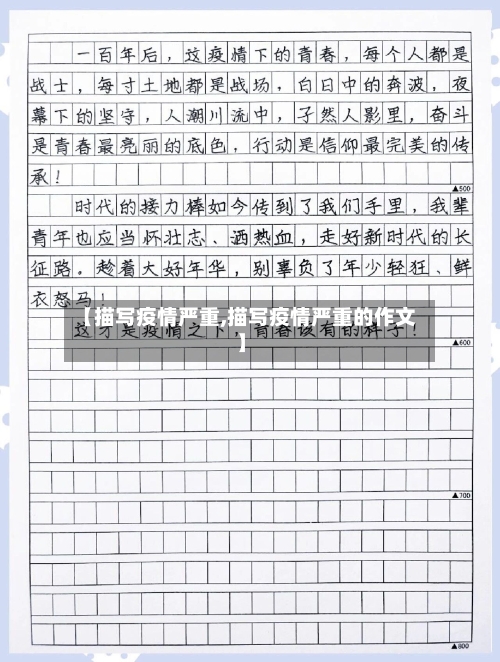 一百年后，这疫情下的青春，每个人都是
战士，每寸土地都是战场，白日中的奔波，夜
幕下的坚守，人潮川流中，孑然人影里，奋斗
是青春最亮丽的底色，行动是信仰最完美的传
承！
▲500
时代的接力棒如今传到了我们手里，我辈
青年也应当怀壮志、洒热血，走好新时代的长
征路。趁着大好年华，别辜负了年少轻狂、鲜
衣怒马！
【描写疫情严重,描写疫情严重的作文
】
这才是疫情之下，青春该有的样子！
▲600
▲700
▲800